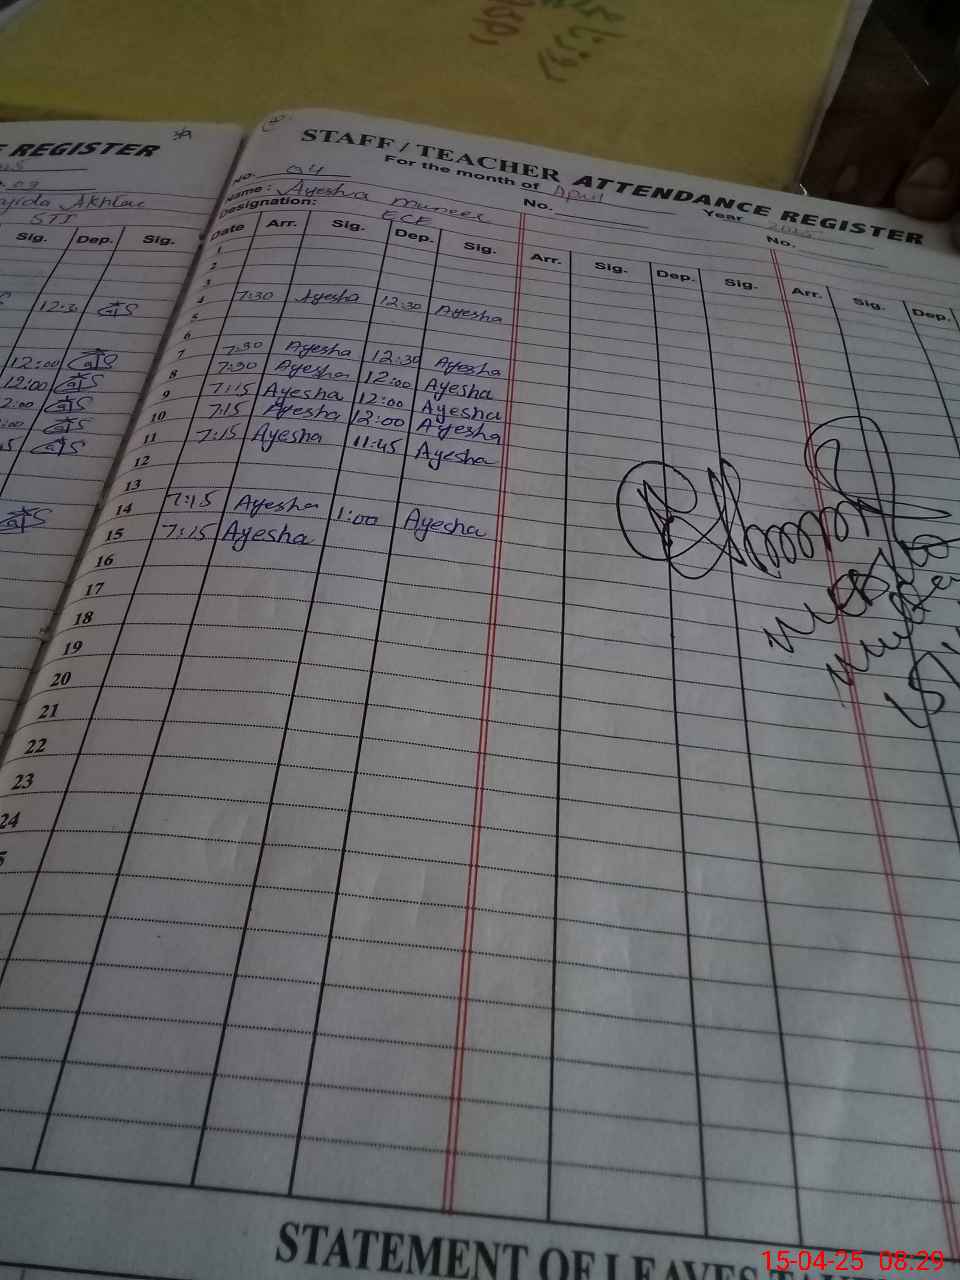 E REGISTER
Akhtar
STT
Sig. Dep. Sig.
12:30
12:00
12:00
2:00
:00
STAFF / TEACHER ATTENDANCE REGISTER
For the month of April Year 2025
No. 04 No. No.
Name: Ayesha Muneer
Designation: ECE
Date Arr. Sig. Dep. Sig. Arr. Sig. Dep. Sig. Arr. Sig. Dep.
1
2
3
4 7:30 Ayesha 12:30 Ayesha
5
6
7 7:30 Ayesha 12:30 Ayesha
8 7:30 Ayesha 12:00 Ayesha
9 7:15 Ayesha 12:00 Ayesha
10 7:15 Ayesha 12:00 Ayesha
11 7:15 Ayesha 11:45 Ayesha
12
13
14 7:15 Ayesha 1:00 Ayesha
15 7:15 Ayesha
16
17
18
19
20
21
22
23
24
STATEMENT OF LEAVES
15-04-25 08:29